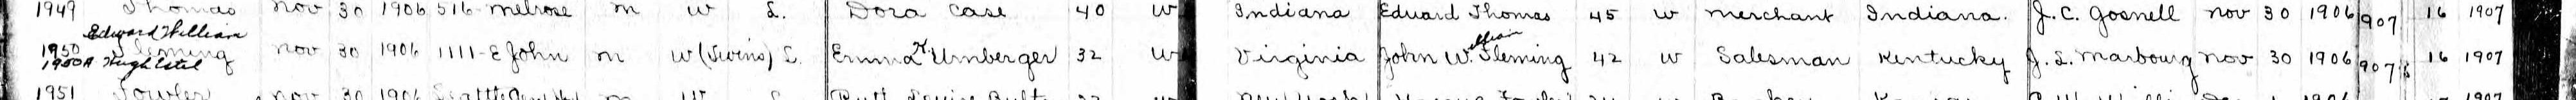 1949 Thomas Nov 30 1906 516 Melrose m w L. Dora Case 40 W Indiana Edward Thomas 45 w Merchant Indiana. J. C. Gosnell Nov 30 1906 907 16 1907
Edward William
1950 Fleming Nov 30 1906 1111-E John m W (Twins) L. Emma K. Umberger 32 W Virginia John W. William Fleming 42 W Salesman Kentucky J. L. Marbourg Nov 30 1906 907 16 1907
1950A Hugh Estel
1951 Fowler Nov 30 1906 Seattle m W 1907